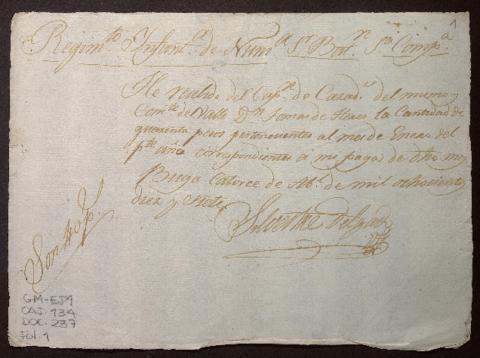 1
Regim.to Infant.a de Num.a 1.r Bat.n 5.a Comp.a
He recibido del Cap.n de Cazad.s del mismo y
Com.te de Valle D.n Tomas de Heres la Cantidad de
quarenta pesos pertenecientes al mes de Enero del
p.te año correspondientes a mi paga de dho mes
Buga Catorce de Ab.l de mil ochocient.s
diez y siete
Silvestre Delgado
Son 40 p.s
GM-EJ9
CAJ. 134
DOC. 237
Fol. 1